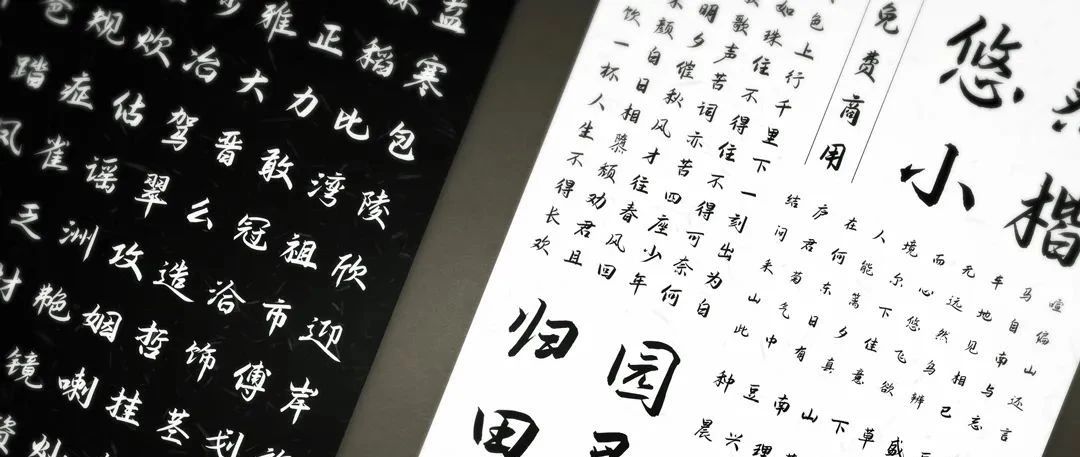 少雅正稻寒
规炊冶大力比包
踏症估驾晋敢湾陵
凤雀谣翠么冠祖欣
乏洲攻造洽市迎
艳姻哲饰傅岸
镜喇挂茎划
悠然
小楷
免费商用
色上行千里下一刻出为白
如珠住不得住不得可奈何
歌声苦词亦苦四座少年
明夕催秋风才往春风回
朱颜白日相隳颓劝君且
饮一杯人生不得长欢
结庐在人境而无车马喧
问君何能尔心远地自偏
采菊东篱下悠然见南山
山气日夕佳飞鸟相与还
此中有真意欲辨已忘言
归园
田
种豆南山下草盛
晨兴理